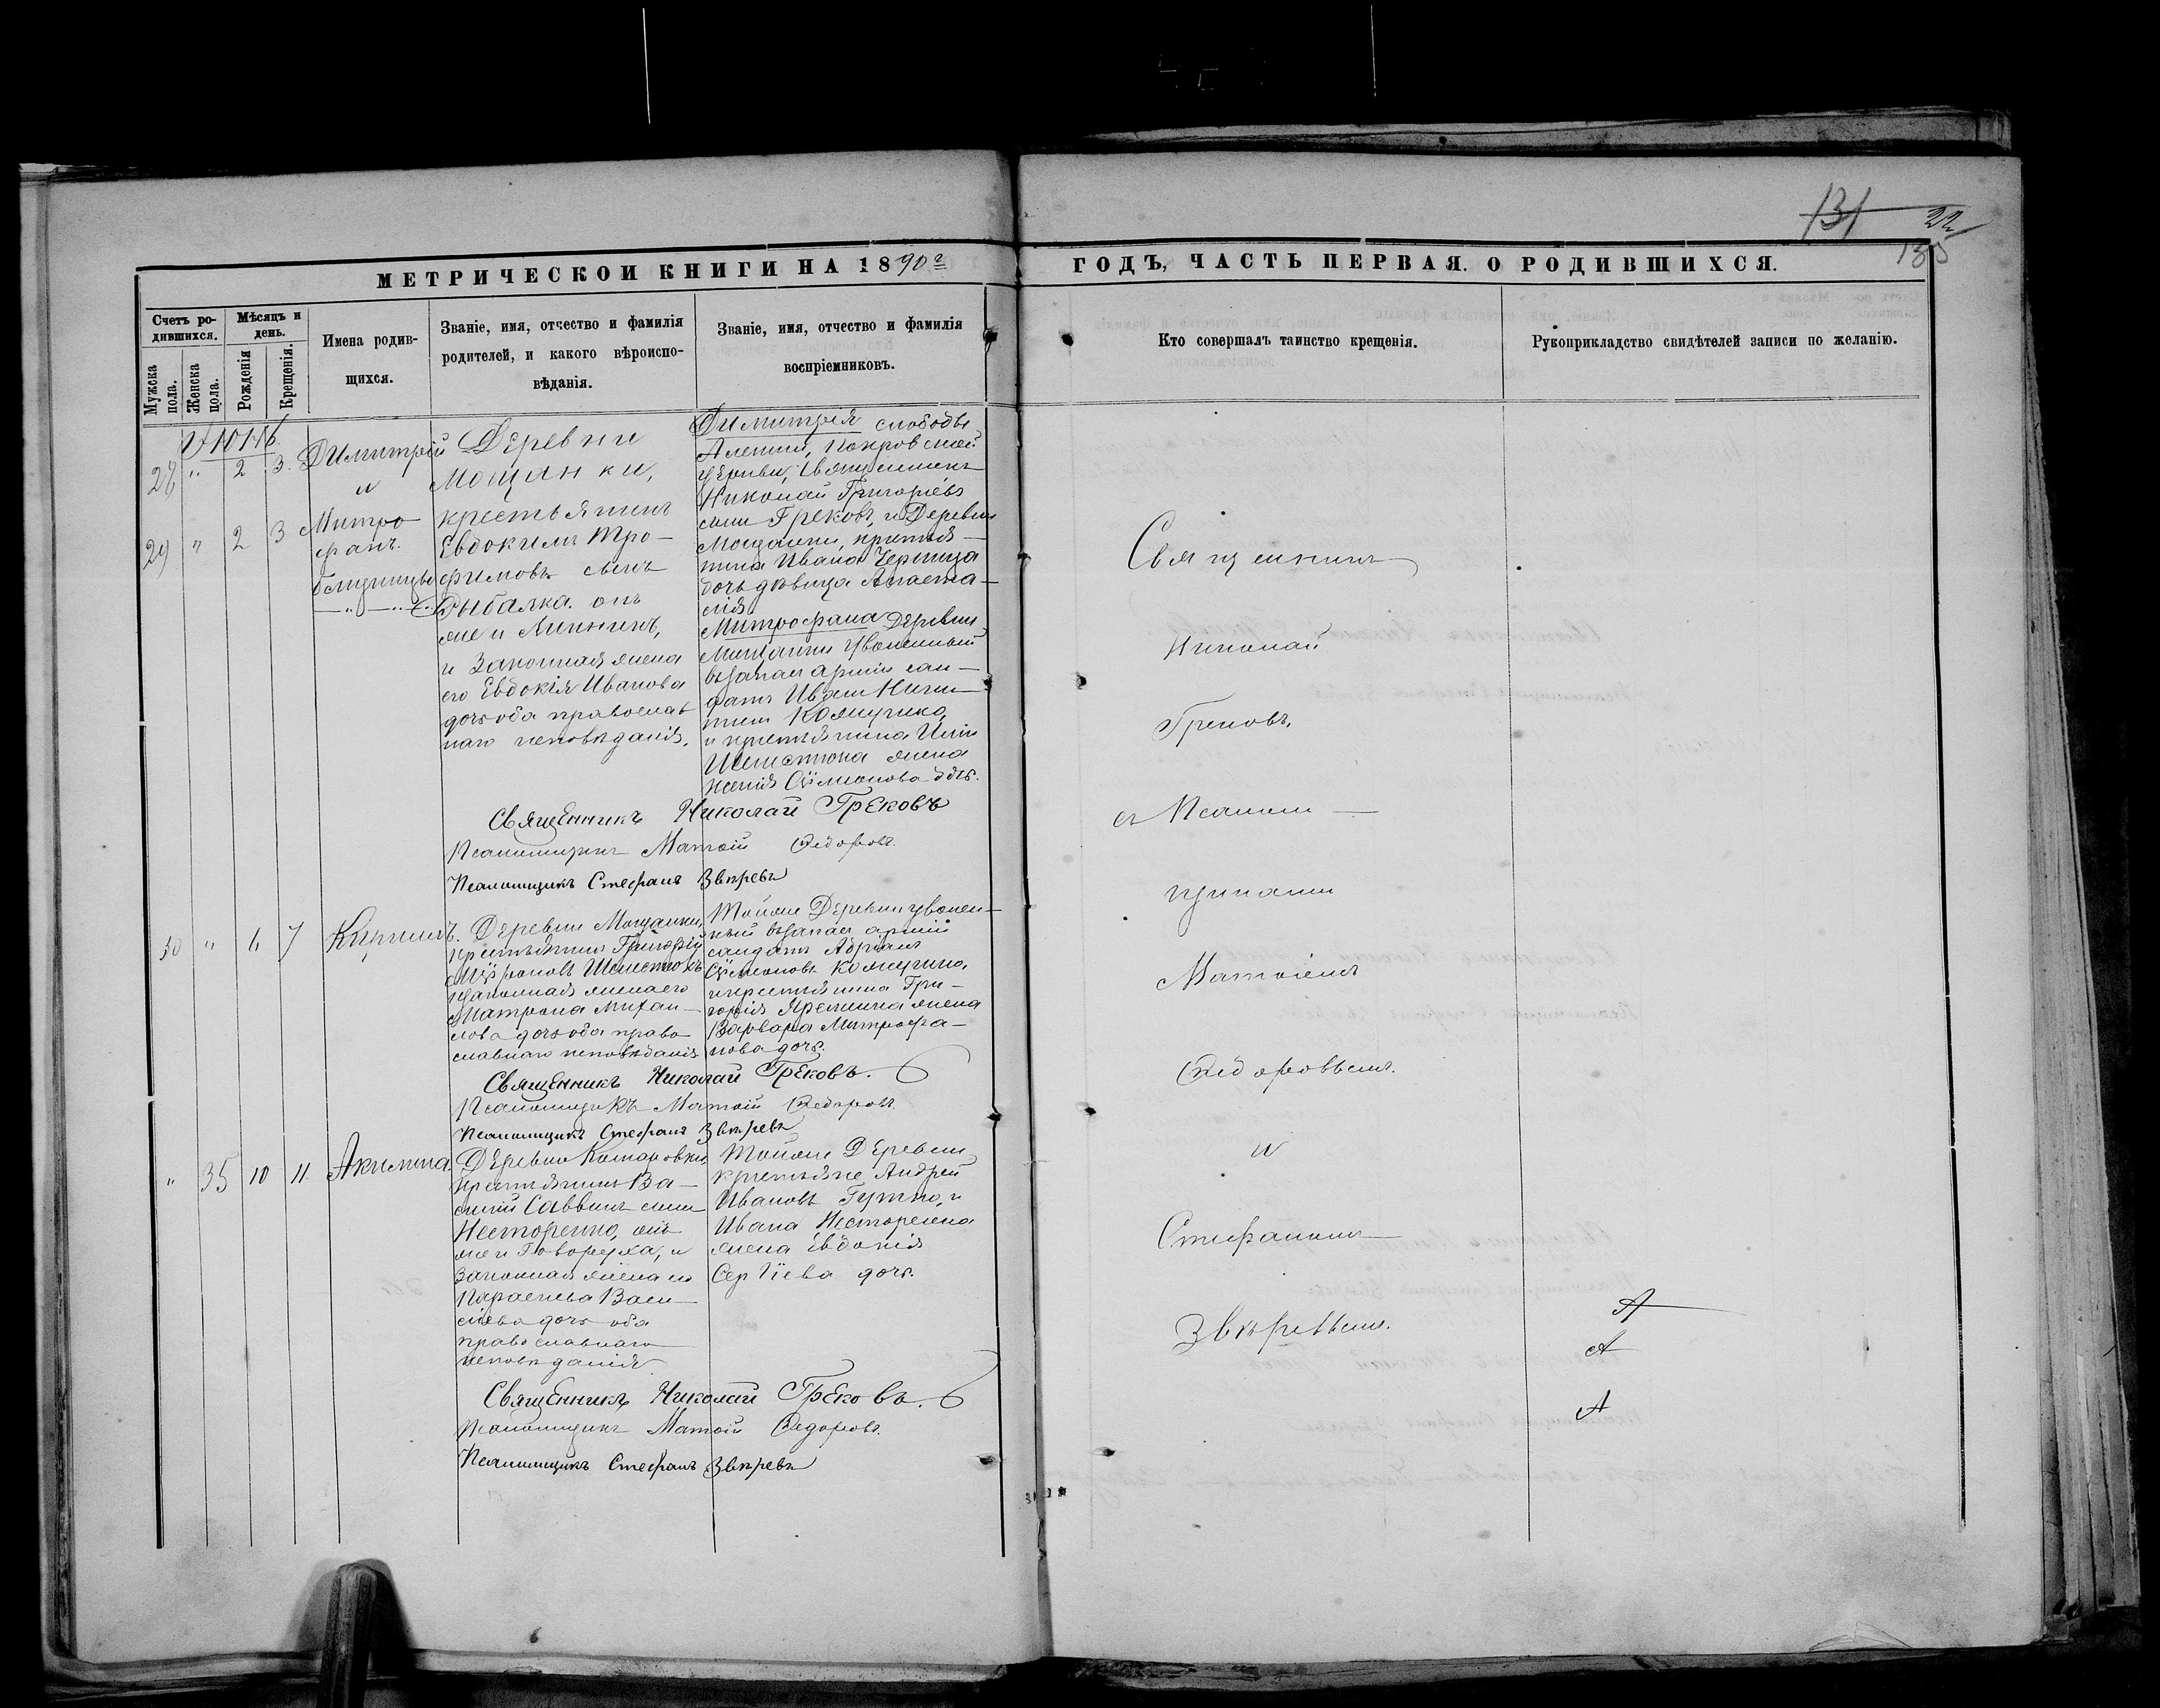 131
22
135
МЕТРИЧЕСКОЙ КНИГИ НА 1890 г
ГОДЪ, ЧАСТЬ ПЕРВАЯ. О РОДИВШИХСЯ.
Счетъ родившихся.
Мужска пола.
Женска пола.
Мѣсяцъ и день.
Рожденія
Крещенія.
Имена родившихся.
Званіе, имя, отчество и фамилія родителей, и какого вѣроисповѣданія.
Званіе, имя, отчество и фамилія воспріемниковъ.
Кто совершалъ таинство крещенія.
Рукоприкладство свидѣтелей записи по желанію.
28 " 2 3.
29 " 2 3
Димитрій
и
Митро
фанъ.
близнецы
Деревни
Мощанки,
крестьянинъ
Евдокимъ Тро-
фимовъ сынъ
Рыбалка. онъ
же и Линникъ,
и Законная жена
его Евдокія Иванова
дочь оба православ
наго исповѣданія.
Димитрія слободы
Алешни, Покровской
церкви, Священникъ
Николай Григоріевъ
сынъ Грековъ, и Деревни
Мощанки, крестья-
нина Ивана
дочь дѣвица Анаста-
сія.
Митрофана Деревни
Мощанки уволенный
въ запас арміи сол-
датъ Иванъ
и крестьянина
Шелестюка жена
Ксенія Сумеонова дочь.
Священникъ Николай Грековъ
Псаломщикъ Матѳій Ѳедоровъ.
Псаломщикъ Стефанъ Звѣревъ
30 " 6 7
Кириллъ.
Деревни Мощанки,
крестьянинъ Григорій
Шелестюкъ
и законная жена его
Матрона Михаи-
лова дочь оба право
славнаго исповѣданія
Тойже Деревни уволен-
ный въ запас арміи
солдатъ Адріанъ
Сумеоновъ
и крестьянина Гри-
горія жена
Варвара Митрофа-
нова дочь.
Священникъ Николай Грековъ.
Псаломщикъ Матѳій Ѳедоровъ
Псаломщикъ Стефанъ Звѣревъ
" 35 10 11.
Акилина.
Деревни Комаровки,
крестьянинъ Ва-
силій Саввинъ сынъ
Несторенко, онъ
же и Говоруха, и
Законная жена его
Параскева Васи-
ліева дочь оба
православнаго
исповѣданія
Тойже Деревни
крестьяне Андрей
Ивановъ и
Ивана Несторенка
жена Евдокія
Сергіева дочь.
Священникъ Николай Грековъ.
Псаломщикъ Матѳій Ѳедоровъ.
Псаломщикъ Стефанъ Звѣревъ
Священникъ
Николай
Грековъ,
съ Псалом-
щиками
Матѳіемъ
Ѳедоровымъ.
и
Стефаномъ
Звѣревымъ.
А
А
А